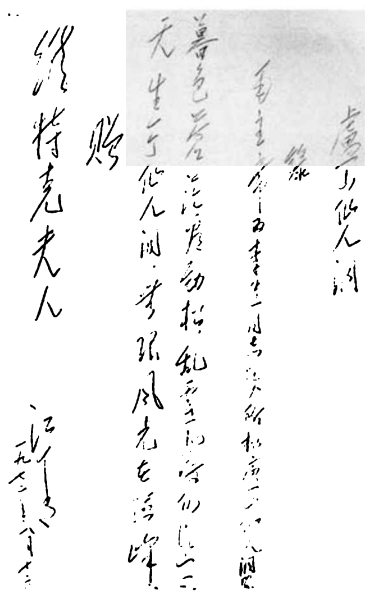 庐山仙人洞
录
毛主席为李进同志题所摄庐山仙人洞照
暮色苍茫看劲松 乱云飞渡仍从容
天生一个仙人洞 无限风光在险峰
赠
维特克夫人
江青
一九七二年八月